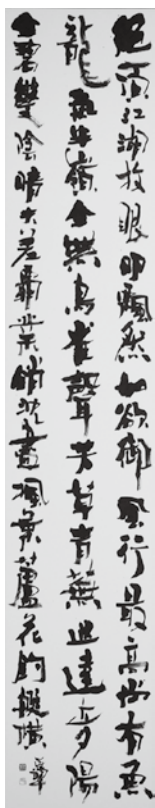 絕頂江湖放眼明飄然如欲御風行最高尚有魚
龍氣半嶺全無鳥雀聲芳草青蕪迷遠近夕陽
金碧變陰晴夫差霸業銷沈盡楓葉蘆花釣艇橫